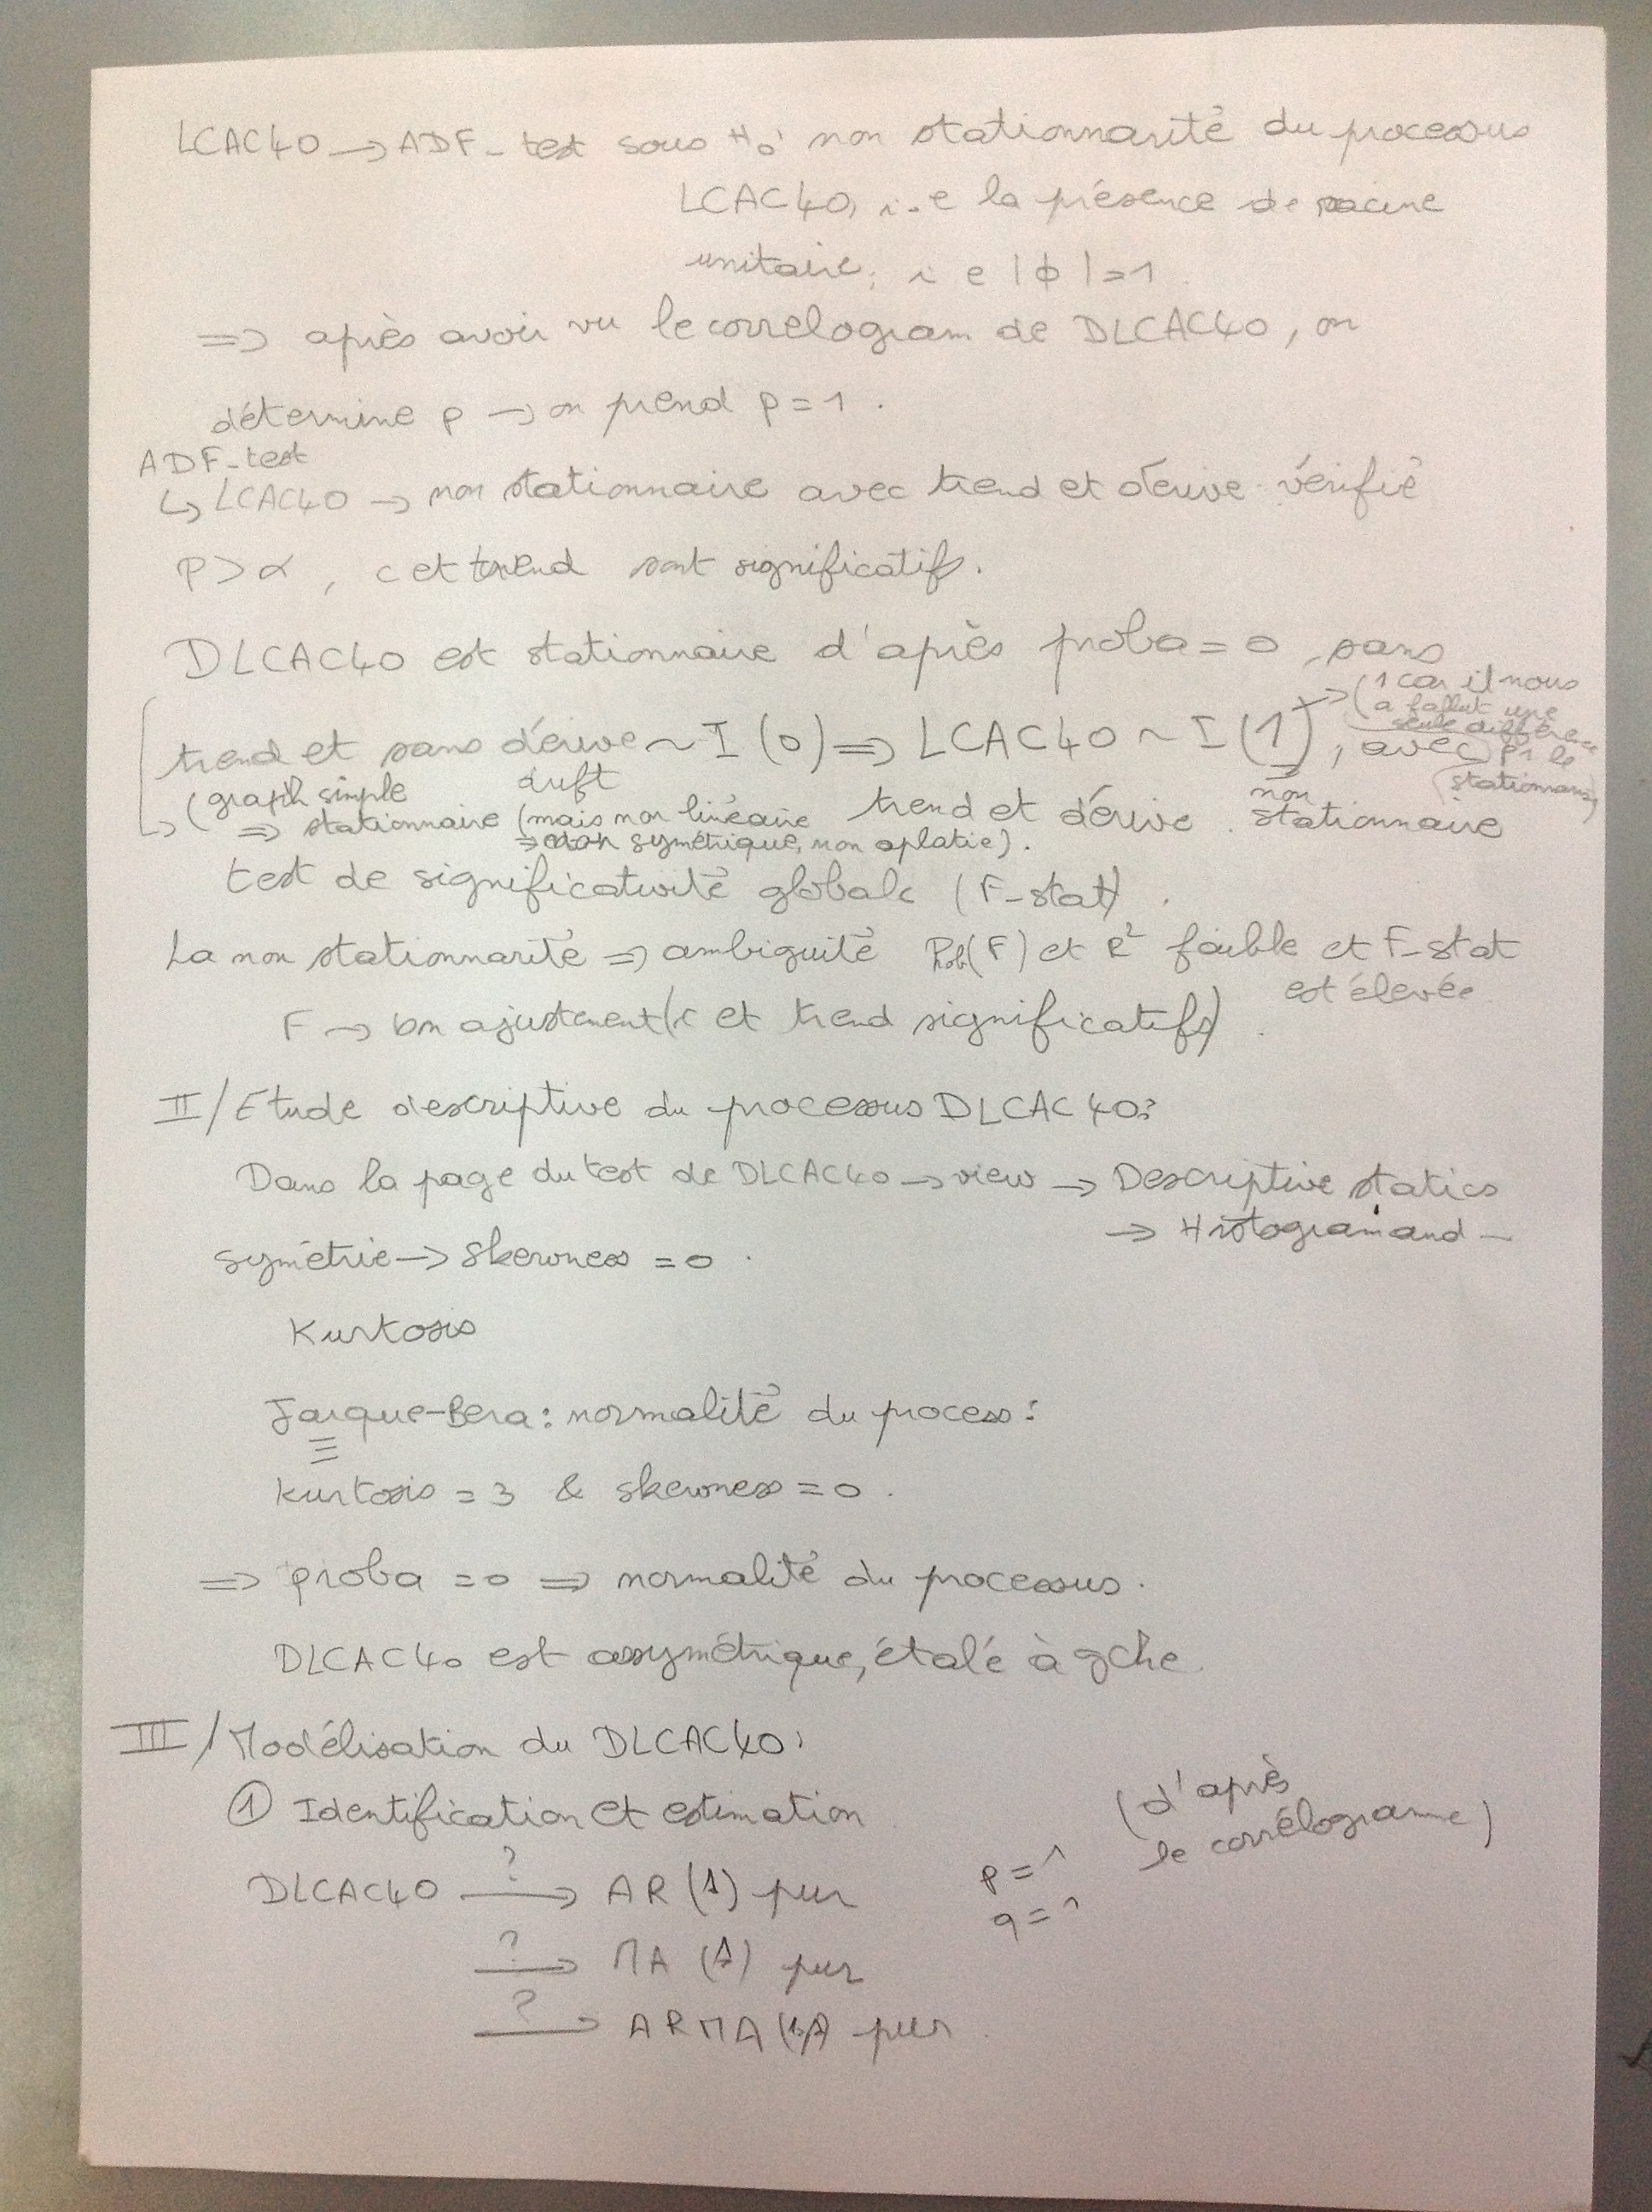 LCAC40 → ADF-test sous H₀: non stationnarité du processus
LCAC40, i-e la présence de racine
unitaire, i e |ϕ| = 1
=> après avoir vu le correlogram de DLCAC40, on
détermine p → on prend p = 1 .
ADF-test
↳ LCAC40 → non stationnaire avec trend et dérive vérifié
P > α , c et trend sont significatifs.
DLCAC40 est stationnaire d'après proba = 0 , sans
trend et sans dérive ~ I (0) => LCAC40 ~ I (1) , avec
→ (1 car il nous
a fallut une
seule différence
pr le
stationnariser)
drift
↳ (graph simple
=> stationnaire (mais non linéaire
→ non symétrique, non aplatie).
trend et dérive . non stationnaire
test de significativité globale (F-stat) .
La non stationnarité => ambiguité Prob(F) et R² faible et F-stat
est élevée
F → bn ajustement (c et trend significatifs) .
II/ Etude descriptive du processus DLCAC40:
Dans la page du test de DLCAC40 → view → Descriptive statics
→ Histogram and -
symétrie → Skewness = 0 .
Kurtosis
Jarque-Bera : normalité du process :
≡
Kurtosis = 3 & skewness = 0 .
=> proba = 0 => normalité du processus .
DLCAC40 est assymétrique, étalé à gche
III/ Modélisation du DLCAC40:
① Identification et estimation
(d'après
le corrélogramme)
DLCAC40 ?→ AR (1) pur
p = 1
q = 1
?→ MA (1) pur
?→ ARMA (1,1) pur .